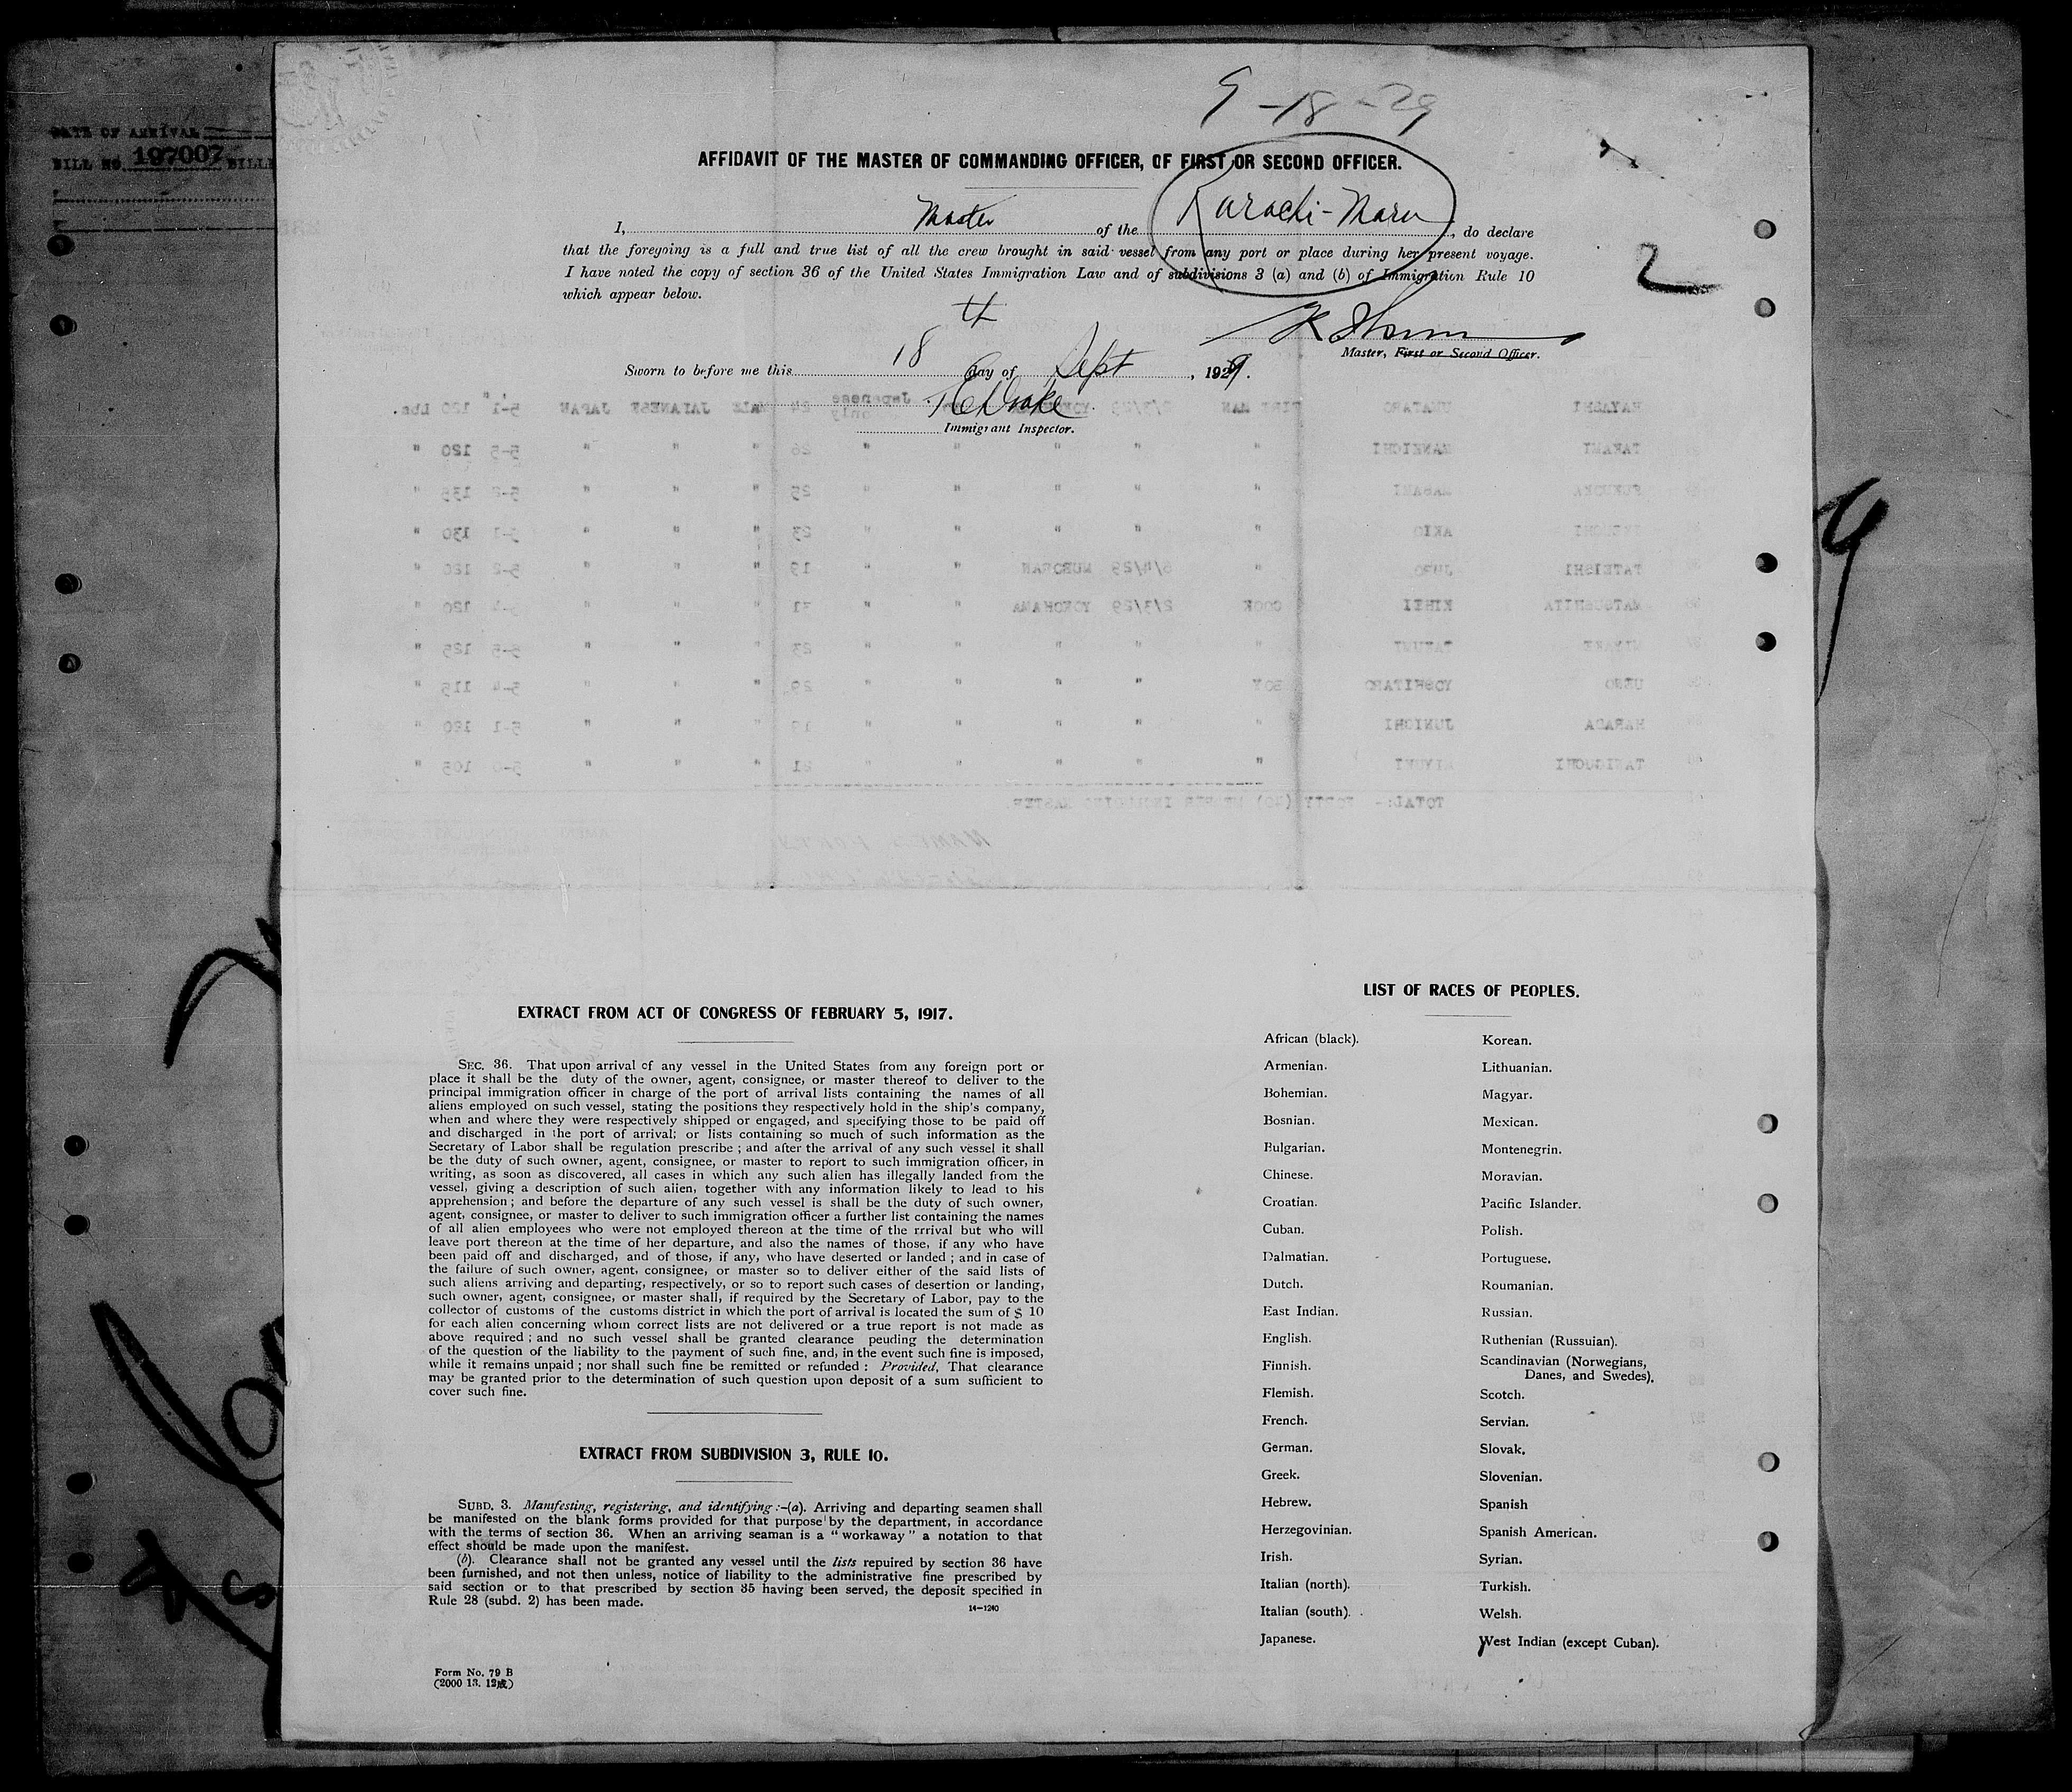 9-18-29
DATE OF ARRIVAL
BILL NO. 197007
AFFIDAVIT OF THE MASTER OF COMMANDING OFFICER, OF FIRST OR SECOND OFFICER.
I, Master of the Karachi-Maru, do declare
that the foregoing is a full and true list of all the crew brought in said vessel from any port or place during her present voyage.
I have noted the copy of section 36 of the United States Immigration Law and of subdivisions 3 (a) and (b) of Immigration Rule 10
which appear below.
2
Master, First or Second Officer.
Sworn to before me this 18th day of Sept, 1929.
Drake
Immigrant Inspector.
HAYASHI UMATARO FIRE MAN Japanese only 24 MALE JAPANESE JAPAN 5-1" 120 Lbs.
TAKAMI MANKICHI " " " " " 26 " " " 5-5 120 "
MASAMI " " " " " 25 " " " "
AKIO " " " " " 23 " " " 130 "
TATEISHI " MURORAN " " 19 " " " 5-2 120 "
MATSUSHITA KIHEI COOK 2/3/29 YOKOHAMA " " 31 " " " 120 "
" " " " " 23 " " " 5-5 125 "
UENO YOSHITARO BOY " " " " 29 " " " 5-4 115 "
HARADA JUNICHI " " " " " 19 " " " 5-1 120 "
TANIGUCHI " " " " " 21 " " " 5-0 105 "
TOTAL:- FORTY (40) MEMBER INCLUDING MASTER.
EXTRACT FROM ACT OF CONGRESS OF FEBRUARY 5, 1917.
SEC. 36. That upon arrival of any vessel in the United States from any foreign port or
place it shall be the duty of the owner, agent, consignee, or master thereof to deliver to the
principal immigration officer in charge of the port of arrival lists containing the names of all
aliens employed on such vessel, stating the positions they respectively hold in the ship's company,
when and where they were respectively shipped or engaged, and specifying those to be paid off
and discharged in the port of arrival; or lists containing so much of such information as the
Secretary of Labor shall be regulation prescribe ; and after the arrival of any such vessel it shall
be the duty of such owner, agent, consignee, or master to report to such immigration officer, in
writing, as soon as discovered, all cases in which any such alien has illegally landed from the
vessel, giving a description of such alien, together with any information likely to lead to his
apprehension ; and before the departure of any such vessel is shall be the duty of such owner,
agent, consignee, or master to deliver to such immigration officer a further list containing the names
of all alien employees who were not employed thereon at the time of the rrrival but who will
leave port thereon at the time of her departure, and also the names of those, if any who have
been paid off and discharged, and of those, if any, who have deserted or landed ; and in case of
the failure of such owner, agent, consignee, or master so to deliver either of the said lists of
such aliens arriving and departing, respectively, or so to report such cases of desertion or landing,
such owner, agent, consignee, or master shall, if required by the Secretary of Labor, pay to the
collector of customs of the customs district in which the port of arrival is located the sum of $ 10
for each alien concerning whom correct lists are not delivered or a true report is not made as
above required ; and no such vessel shall be granted clearance peuding the determination
of the question of the liability to the payment of such fine, and, in the event such fine is imposed,
while it remains unpaid ; nor shall such fine be remitted or refunded : Provided, That clearance
may be granted prior to the determination of such question upon deposit of a sum sufficient to
cover such fine.
EXTRACT FROM SUBDIVISION 3, RULE 10.
SUBD. 3. Manifesting, registering, and identifying :-(a). Arriving and departing seamen shall
be manifested on the blank forms provided for that purpose by the department, in accordance
with the terms of section 36. When an arriving seaman is a "workaway" a notation to that
effect should be made upon the manifest.
(b). Clearance shall not be granted any vessel until the lists repuired by section 36 have
been furnished, and not then unless, notice of liability to the administrative fine prescribed by
said section or to that prescribed by section 35 having been served, the deposit specified in
Rule 28 (subd. 2) has been made.
14-1240
Form No. 79 B
(2000 13. 12成)
LIST OF RACES OF PEOPLES.
African (black). Korean.
Armenian. Lithuanian.
Bohemian. Magyar.
Bosnian. Mexican.
Bulgarian. Montenegrin.
Chinese. Moravian.
Croatian. Pacific Islander.
Cuban. Polish.
Dalmatian. Portuguese.
Dutch. Roumanian.
East Indian. Russian.
English. Ruthenian (Russuian).
Finnish. Scandinavian (Norwegians,
Danes, and Swedes).
Flemish. Scotch.
French. Servian.
German. Slovak.
Greek. Slovenian.
Hebrew. Spanish
Herzegovinian. Spanish American.
Irish. Syrian.
Italian (north). Turkish.
Italian (south). Welsh.
Japanese. West Indian (except Cuban).